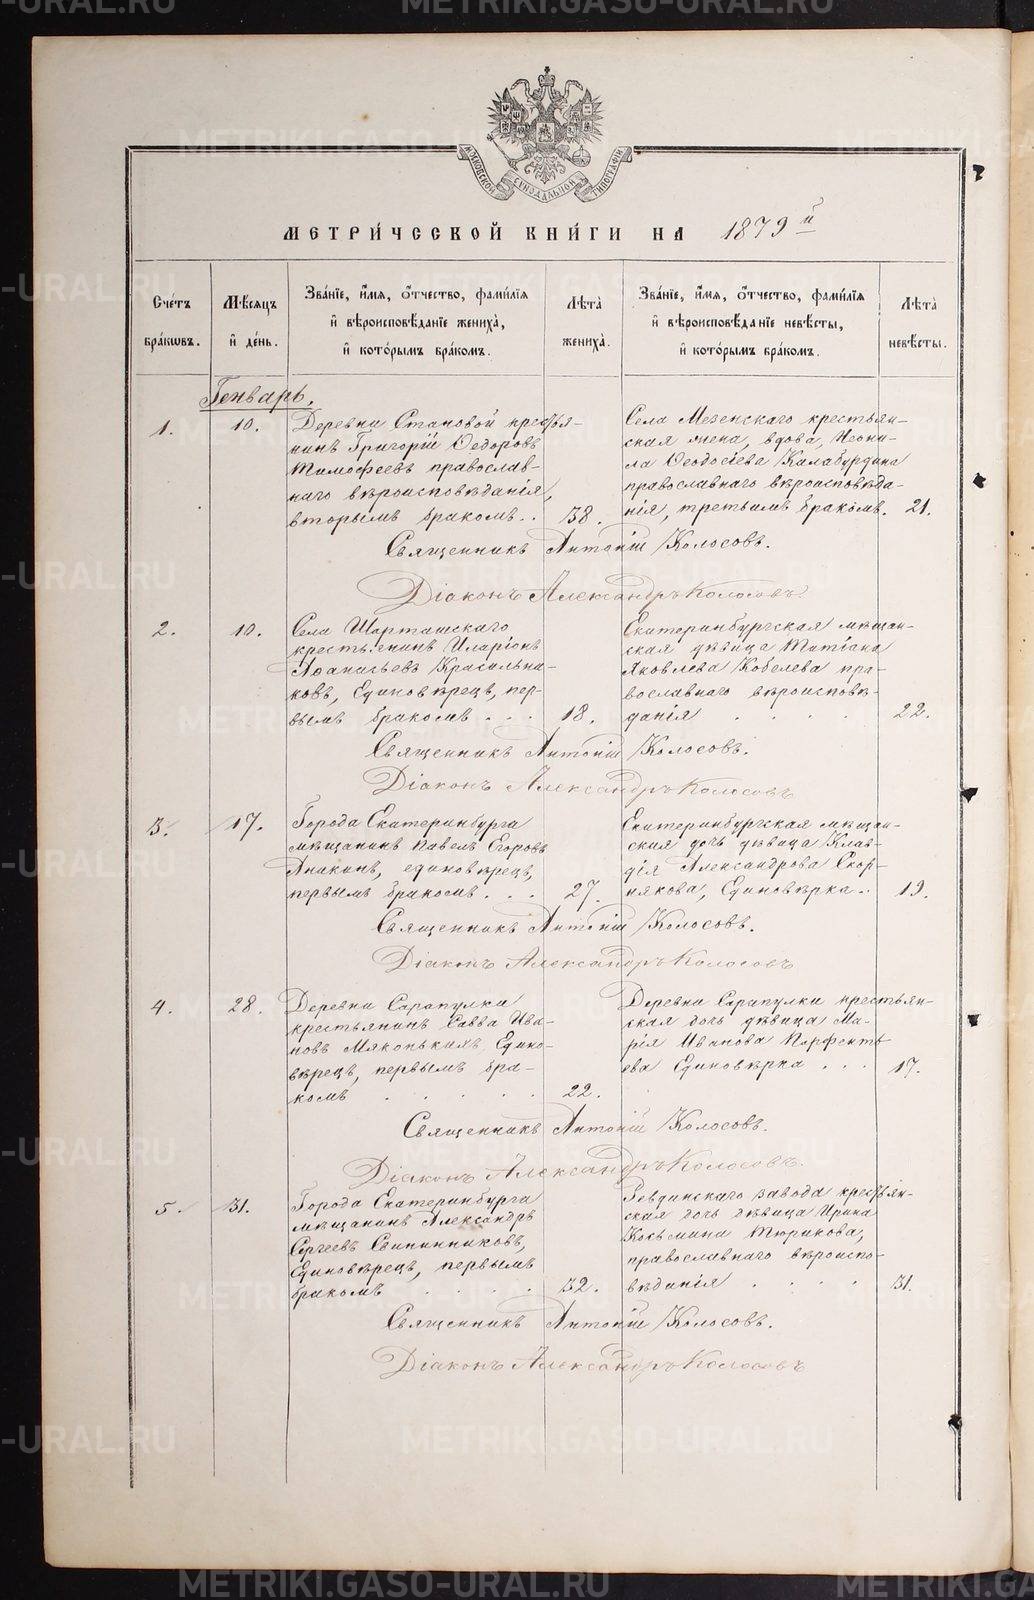 МОСКОВСКОЙ СѴНОДАЛЬНОЙ ТИПОГРАФІИ
МЕТРИ́ЧЕСКОЙ КНИ́ГИ НА 1879й
Сче́тъ бра́кωвъ.
Мѣ́сяцъ и҆ де́нь.
Зва́нїе, и҆́мя, ѻ҆́тчество, фами́лїя
и҆ вѣроисповѣ́данїе жениха̀,
и҆ кото́рымъ бра́комъ.
Лѣ́та̀ жениха̀.
Зва́нїе, и҆́мя, ѻ҆́тчество, фами́лїя
и҆ вѣроисповѣ́данїе невѣ́сты,
и҆ кото́рымъ бра́комъ.
Лѣ́та̀ невѣ́сты.
Генварь.
1.
10.
Деревни Становой крестья-
нинъ Григорій Ѳедоровъ
Тимофеевъ православ-
наго вѣроисповѣданія,
вторымъ бракомъ..
38.
Села Мезенскаго крестьян-
ская жена, вдова, Неони-
ла Ѳеодосіева Калабурдина
православнаго вѣроисповѣда-
нія, третьимъ бракомъ.
21.
Священникъ Антоній Колосовъ.
Діаконъ Александръ Колосовъ.
2.
10.
Села Шарташскаго
крестьянинъ Иларіонъ
Аѳанасьевъ Красильни-
ковъ, Единовѣрецъ, пер-
вымъ бракомъ . . .
18.
Екатеринбургская мѣщан-
ская дѣвица Татіана
Яковлева Кобелева пра-
вославнаго вѣроисповѣ-
данія . . . .
22.
Священникъ Антоній Колосовъ.
Діаконъ Александръ Колосовъ
3.
17.
Города Екатеринбурга
мѣщанинъ Павелъ Егоровъ
Аникинъ, единовѣрецъ,
первымъ бракомъ . . .
27.
Екатеринбургская мѣщан-
ская дочь дѣвица Клав-
дія Александрова Скор-
някова, Единовѣрка..
19.
Священникъ Антоній Колосовъ.
Діаконъ Александръ Колосовъ
4.
28.
Деревни Сарапулки
крестьянинъ Савва Ива-
новъ Мяконькихъ Едино-
вѣрецъ, первымъ бра-
комъ . . . . .
22.
Деревни Сарапулки крестьян-
ская дочь дѣвица Ма-
рія Иванова Парфенть-
ева Единовѣрка . . .
17.
Священникъ Антоній Колосовъ.
Діаконъ Александръ Колосовъ.
5.
31.
Города Екатеринбурга
мѣщанинъ Александръ
Сергеевъ Свининниковъ,
Единовѣрецъ, первымъ
бракомъ . . . .
32.
Ревдинскаго завода крестьян-
ская дочь дѣвица Ирина
Козьмина Тюрикова,
православнаго вѣроиспо-
вѣданія . . . .
31.
Священникъ Антоній Колосовъ.
Діаконъ Александръ Колосовъ
METRIKI.GASO-URAL.RU